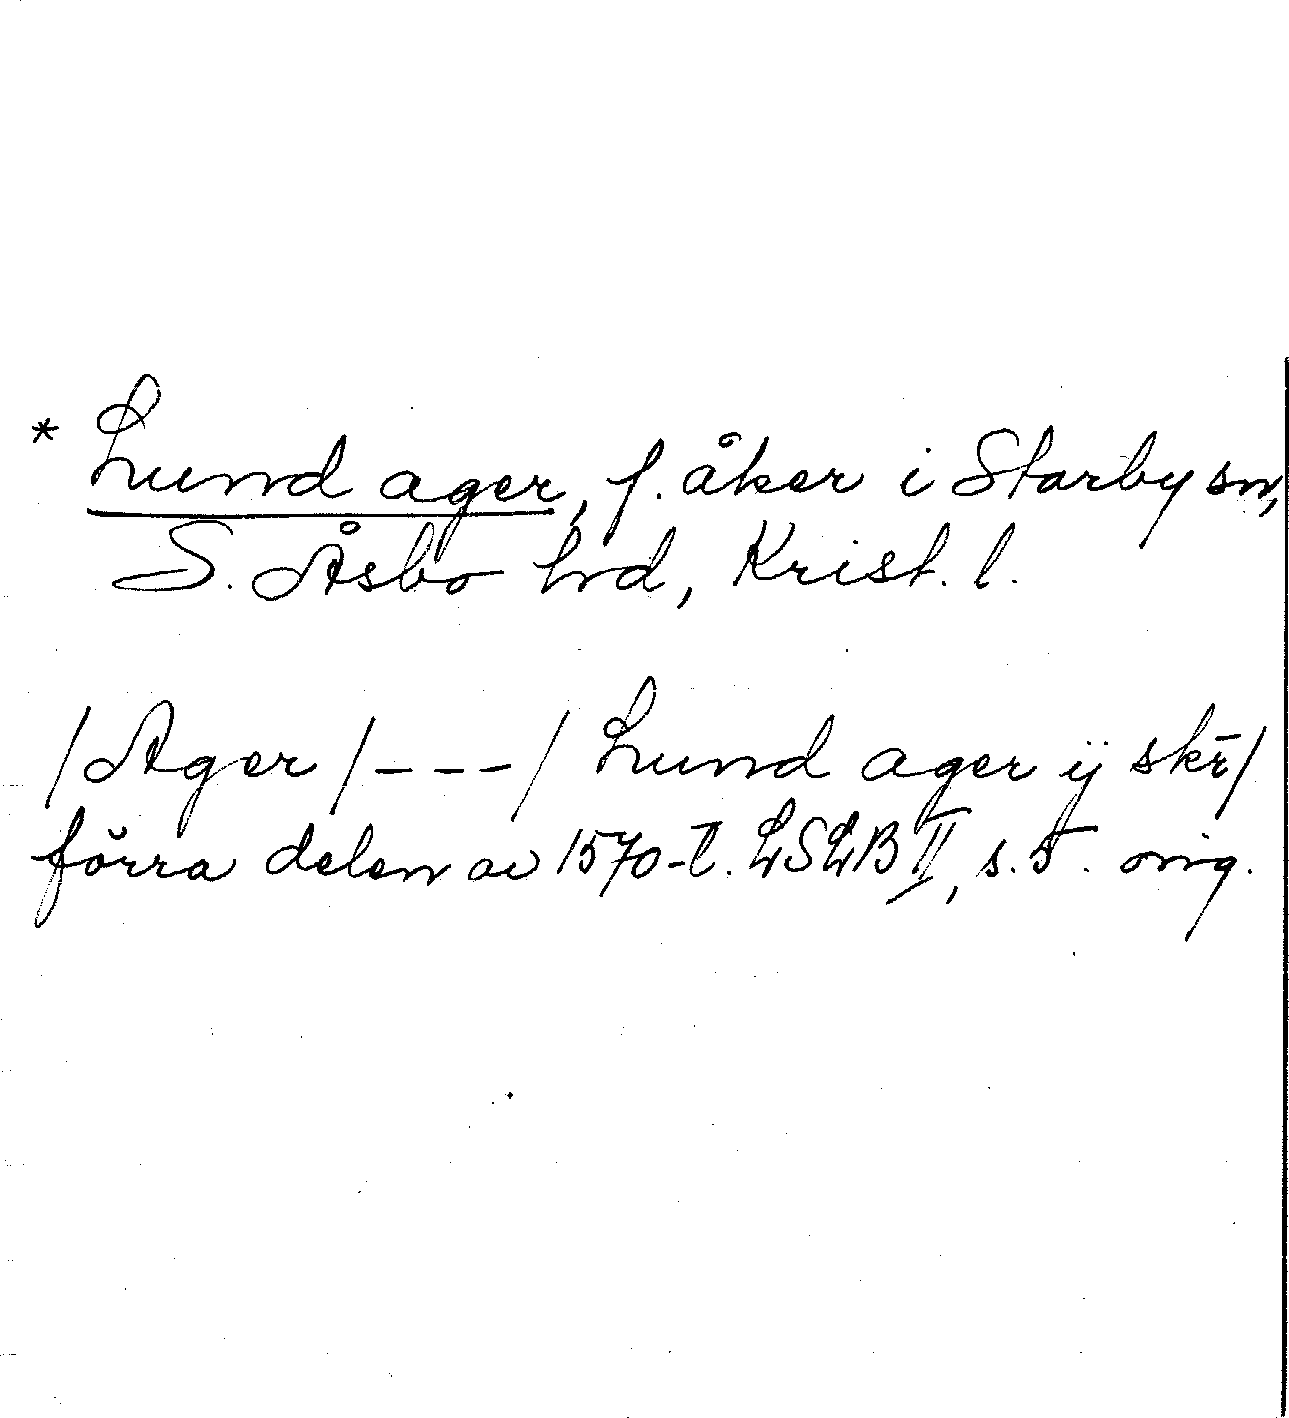 * Lund ager, f. åker i Starby sn,
S. Åsbo hrd, Krist. l.
/Ager/---/ Lund ager ÿ skr̄/
förra delen av 1570-t. LSLB II, s. 5. orig.